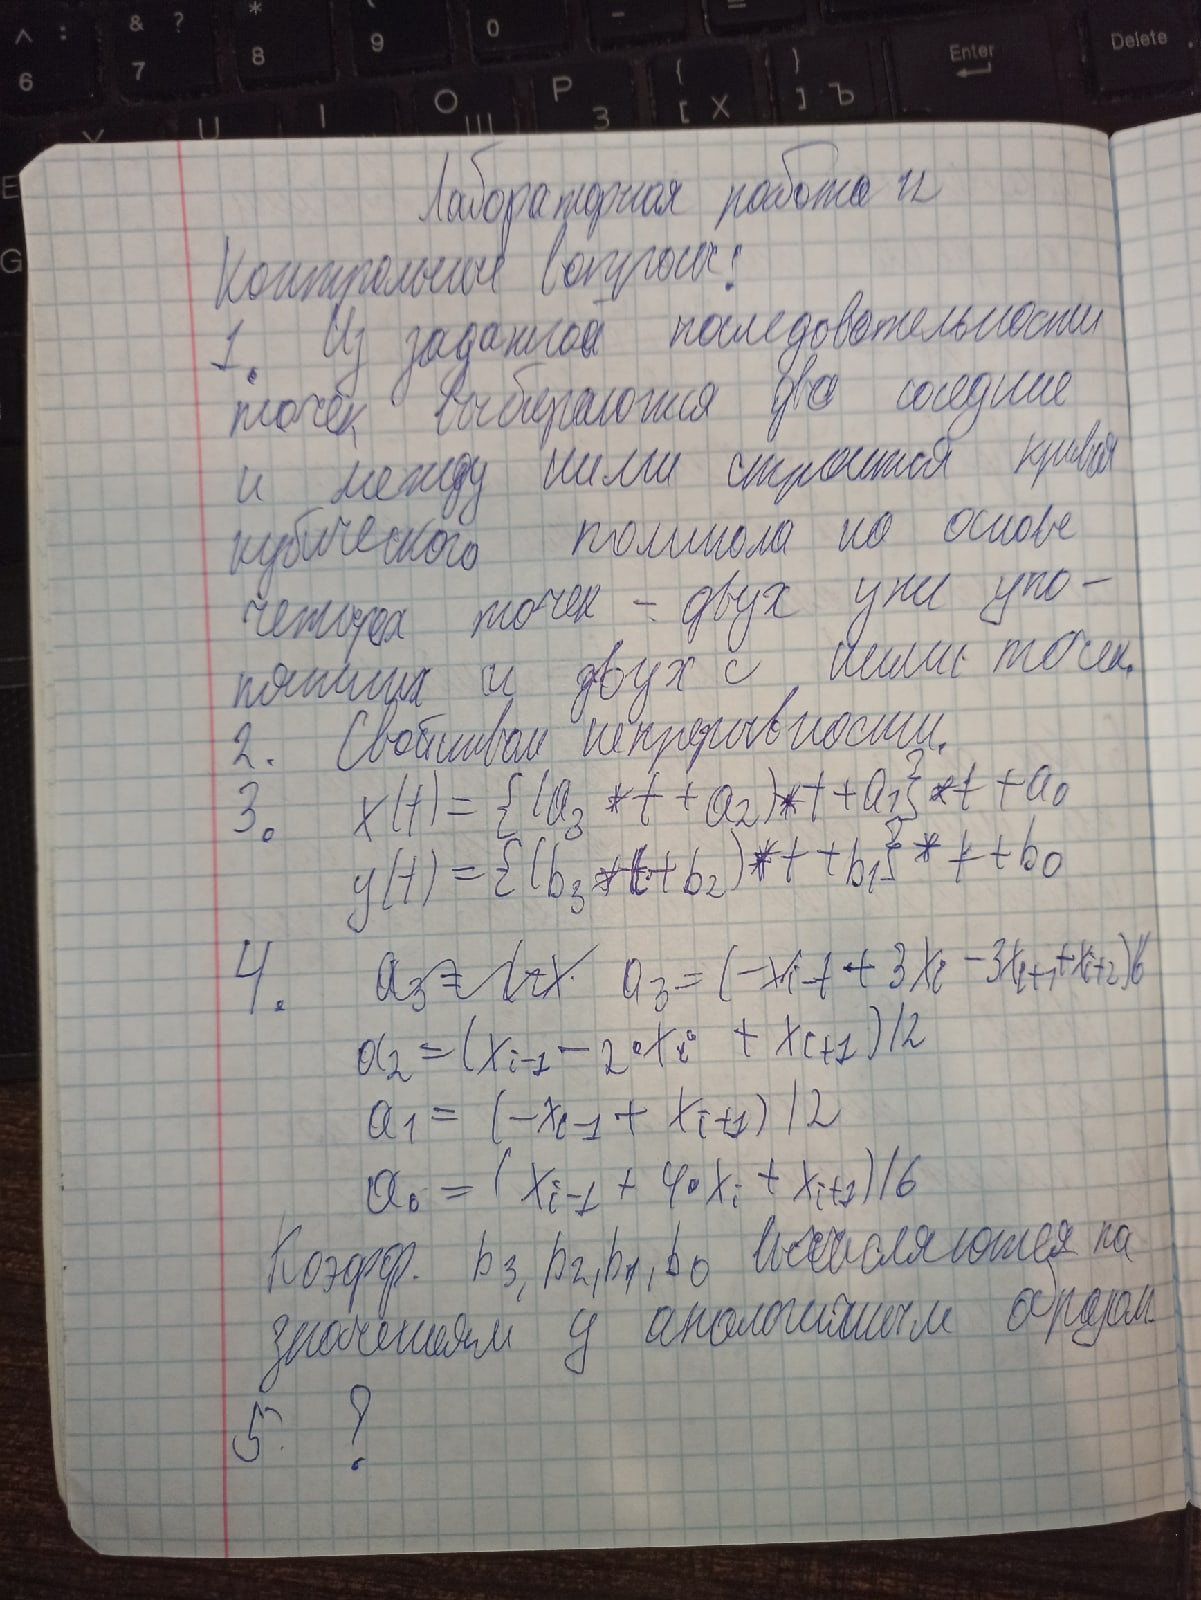 ^ : 6
& ? 7
* 8
( 9
) 0
-
=
Enter
Delete
E
G
Y
U
I
O Щ
P З
{ [ Х
} ] Ъ
Лабораторная работа 12
Контрольные вопросы:
1. Из заданной последовательности
точек выбираются две соседние
и между ними строится кривая
кубического полинома на основе
четырех точек - двух упо-
мянутых и двух с ними точек.
2. Свойством непрерывности.
3. x(t) = {(a3 * t + a2) * t + a1} * t + a0
y(t) = {(b3 * t + b2) * t + b1} * t + b0
4. a3 = (-xi-1 + 3xi - 3xi+1 + xi+2)/6
a2 = (xi-1 - 2·xi + xi+1)/2
a1 = (-xi-1 + xi+1)/2
a0 = (xi-1 + 4·xi + xi+1)/6
Коэфф. b3, b2, b1, b0 вычисляются по
значениям y аналогичным образом
5. ?